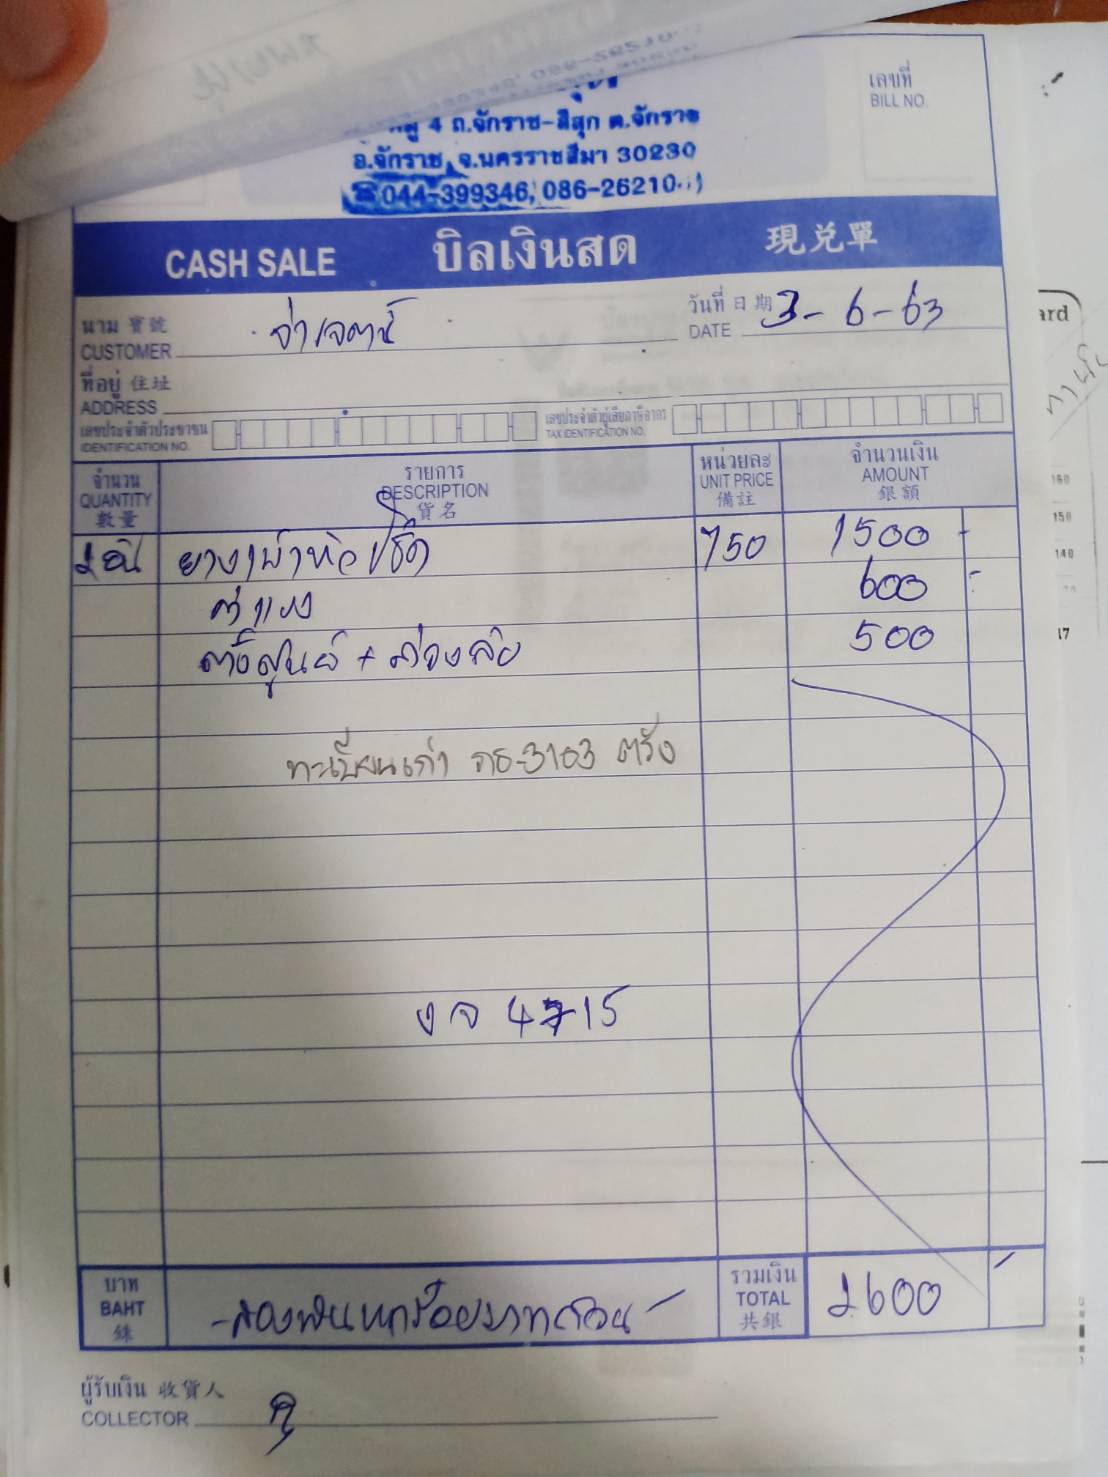 หมู่ 4 ถ.จักราช-สีสุก ต.จักราช
อ.จักราช จ.นครราชสีมา 30230
☎044-399346, 086-26210
เลขที่
BILL NO.
CASH SALE บิลเงินสด 現兑單
นาม 寳號
CUSTOMER จ่าเจตน์
วันที่ 日期 3-6-63
DATE
ที่อยู่ 住址
ADDRESS
เลขประจำตัวประชาชน
IDENTIFICATION NO.
เลขประจำตัวผู้เสียภาษีอากร
TAX IDENTIFICATION NO.
จำนวน
QUANTITY
數量
รายการ
DESCRIPTION
貨名
หน่วยละ
UNIT PRICE
備註
จำนวนเงิน
AMOUNT
銀額
2 อัน ยางเบ้าหัวโช๊ค 750 1500 -
ค่าแรง 600 -
ตั้งศูนย์ + ถ่วงล้อ 500
ทะเบียนเก่า 3103 ตรัง
ง จ 4715
บาท
BAHT
銖
-สองพันหกร้อยบาทถ้วน-
รวมเงิน
TOTAL
共銀
2600
ผู้รับเงิน 收貨人
COLLECTOR
ard
160
150
140
17